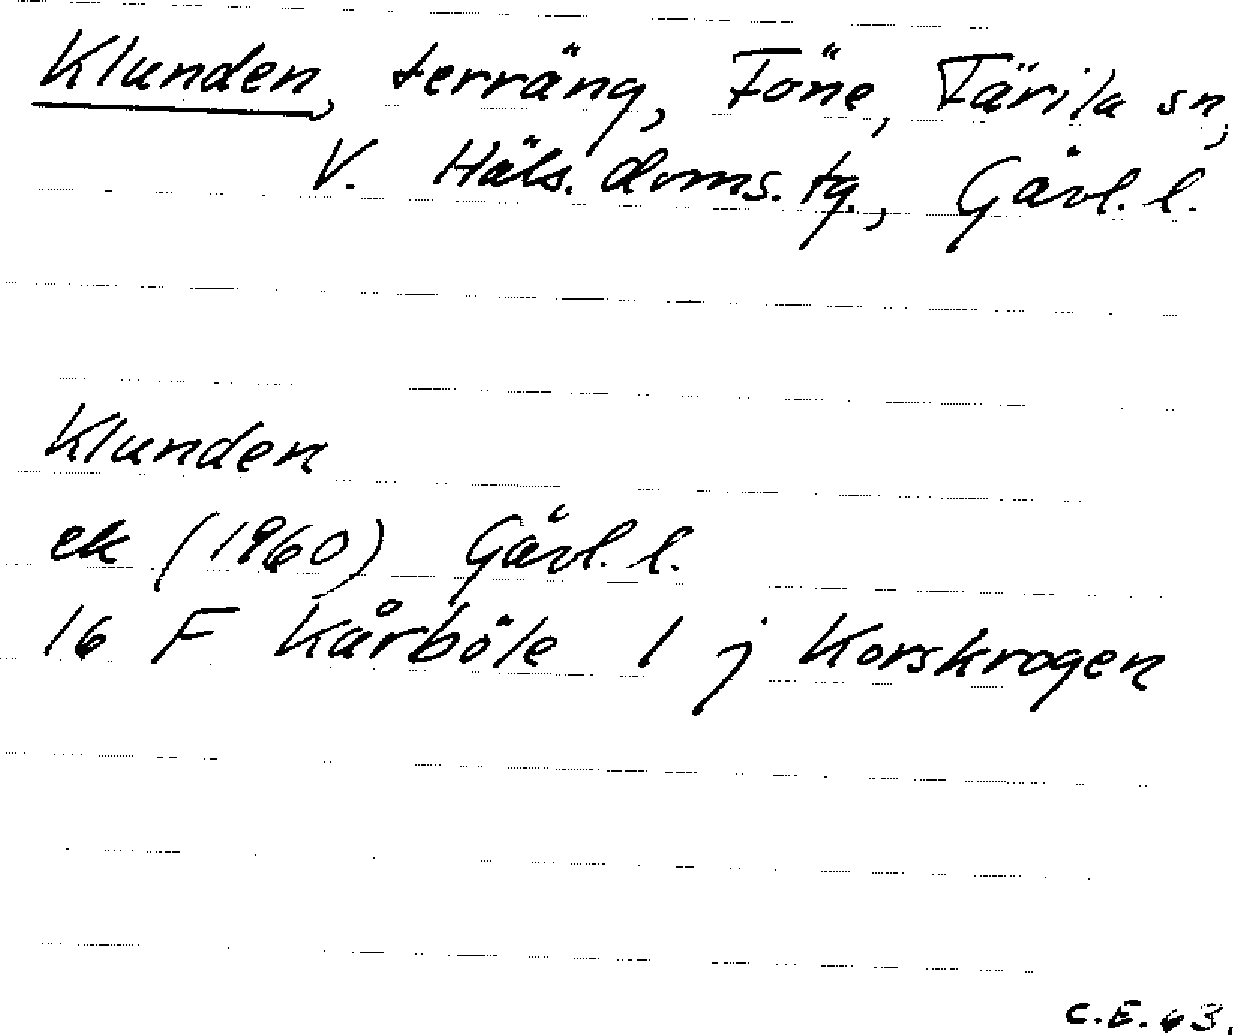 Klunden, terräng, Föne, Färila sn,
V. Häls. doms. tg., Gävl. l.
Klunden
ek (1960) Gävl. l.
16 F Kårböle 1 j Korskrogen
C.E. 63.